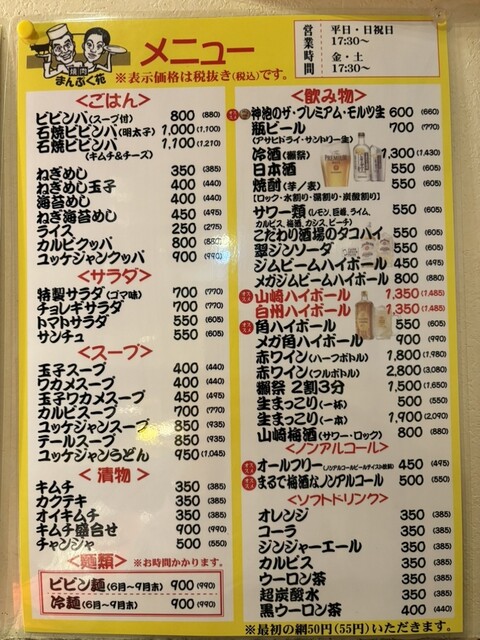 焼肉
まんぷく苑
メニュー
※表示価格は税抜き(税込)です。
営業時間
平日・日祝日
17:30~
金・土
17:30~
<ごはん>
ビビンバ(スープ付) 800 (880)
石焼ビビンバ(明太子) 1,000 (1,100)
石焼ビビンバ 1,100 (1,210)
(キムチ&チーズ)
ねぎめし 350 (385)
ねぎめし玉子 400 (440)
海苔めし 400 (440)
ねぎ海苔めし 450 (495)
ライス 250 (275)
カルビクッパ 800 (880)
ユッケジャンクッパ 900 (990)
<サラダ>
特製サラダ(ゴマ味) 700 (770)
チョレギサラダ 700 (770)
トマトサラダ 550 (605)
サンチュ 550 (605)
<スープ>
玉子スープ 400 (440)
ワカメスープ 400 (440)
玉子ワカメスープ 450 (495)
カルビスープ 700 (770)
ユッケジャンスープ 850 (935)
テールスープ 850 (935)
ユッケジャンうどん 950 (1,045)
<漬物>
キムチ 350 (385)
カクテキ 350 (385)
オイキムチ 350 (385)
キムチ盛合せ 900 (990)
チャンジャ 500 (550)
<麺類> ※お時間かかります。
ビビン麺(6月~9月末) 900 (990)
冷麺(6月~9月末) 900 (990)
<飲み物>
神泡のザ・プレミアム・モルツ生 600 (660)
瓶ビール 700 (770)
(アサヒドライ・サントリー生)
冷酒(獺祭) 1,300 (1,430)
日本酒 550 (605)
焼酎(芋/麦) 550 (605)
[ロック・水割り・湯割り・炭酸割り]
サワー類(レモン、巨峰、ライム、 550 (605)
カシス、梅酒、カシス、ピーチ)
こだわり酒場のタコハイ 550 (605)
翠ジンソーダ 550 (605)
ジムビームハイボール 450 (495)
メガジムビームハイボール 800 (880)
山崎ハイボール 1,350 (1,485)
白州ハイボール 1,350 (1,485)
角ハイボール 550 (605)
メガ角ハイボール 900 (990)
赤ワイン(ハーフボトル) 1,800 (1,980)
赤ワイン(フルボトル) 2,800 (3,080)
獺祭 2割3分 1,500 (1,650)
生まっこり(一杯) 500 (550)
生まっこり(一本) 1,900 (2,090)
山崎梅酒(サワー・ロック) 800 (880)
<ノンアルコール>
オールフリー(ノンアルコールビールテイスト飲料) 450 (495)
まるで梅酒なノンアルコール 500 (550)
<ソフトドリンク>
オレンジ 350 (385)
コーラ 350 (385)
ジンジャーエール 350 (385)
カルピス 350 (385)
ウーロン茶 350 (385)
超炭酸水 350 (385)
黒ウーロン茶 400 (440)
※最初の網50円(55円)いただきます。